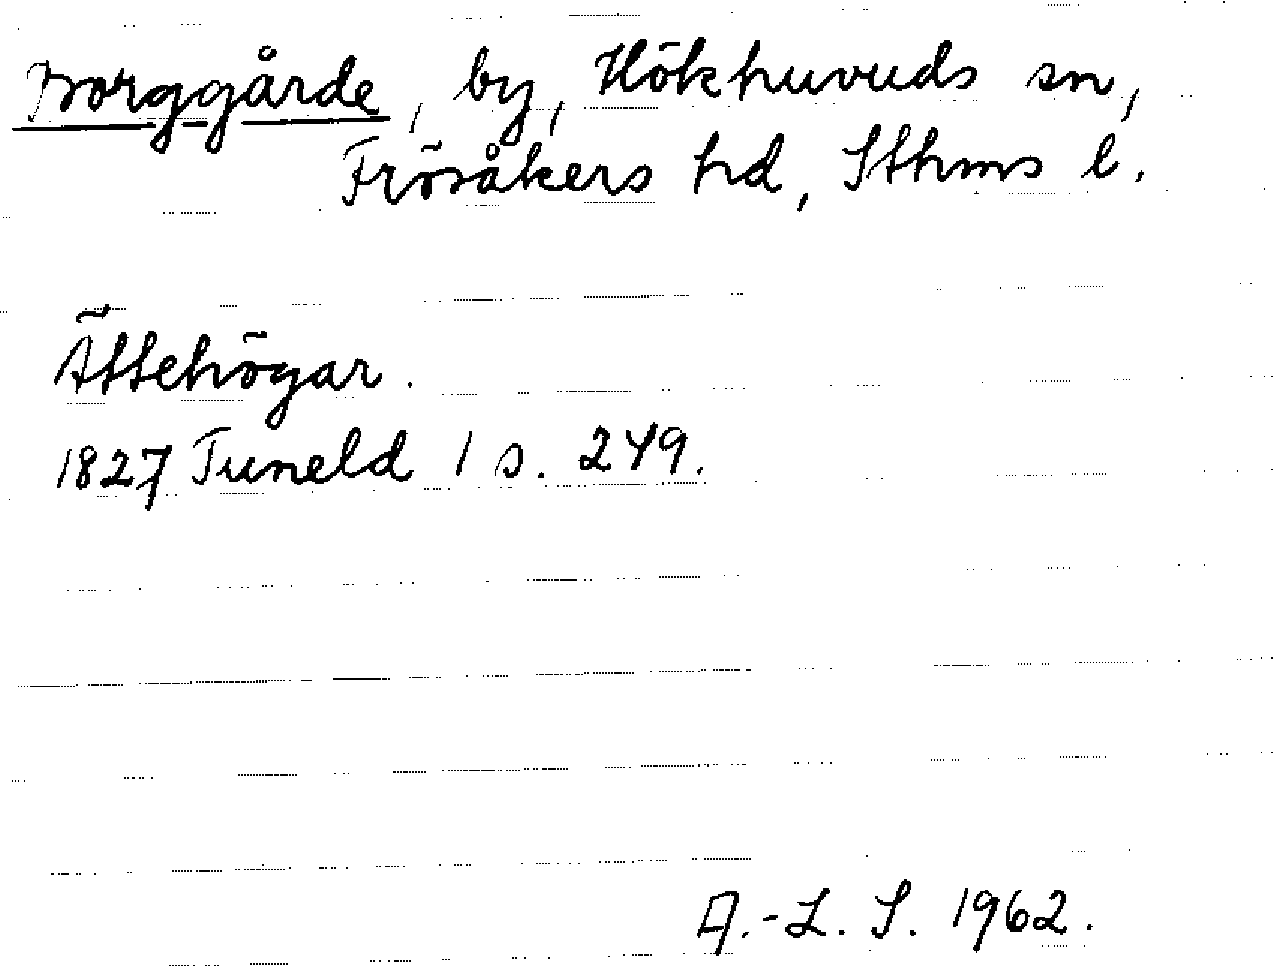 Borggårde, by, Hökhuvuds sn,
Frösåkers hd, Sthms l.
Ättehögar.
1827 Tuneld 1 s. 249.
A.-L. S. 1962.